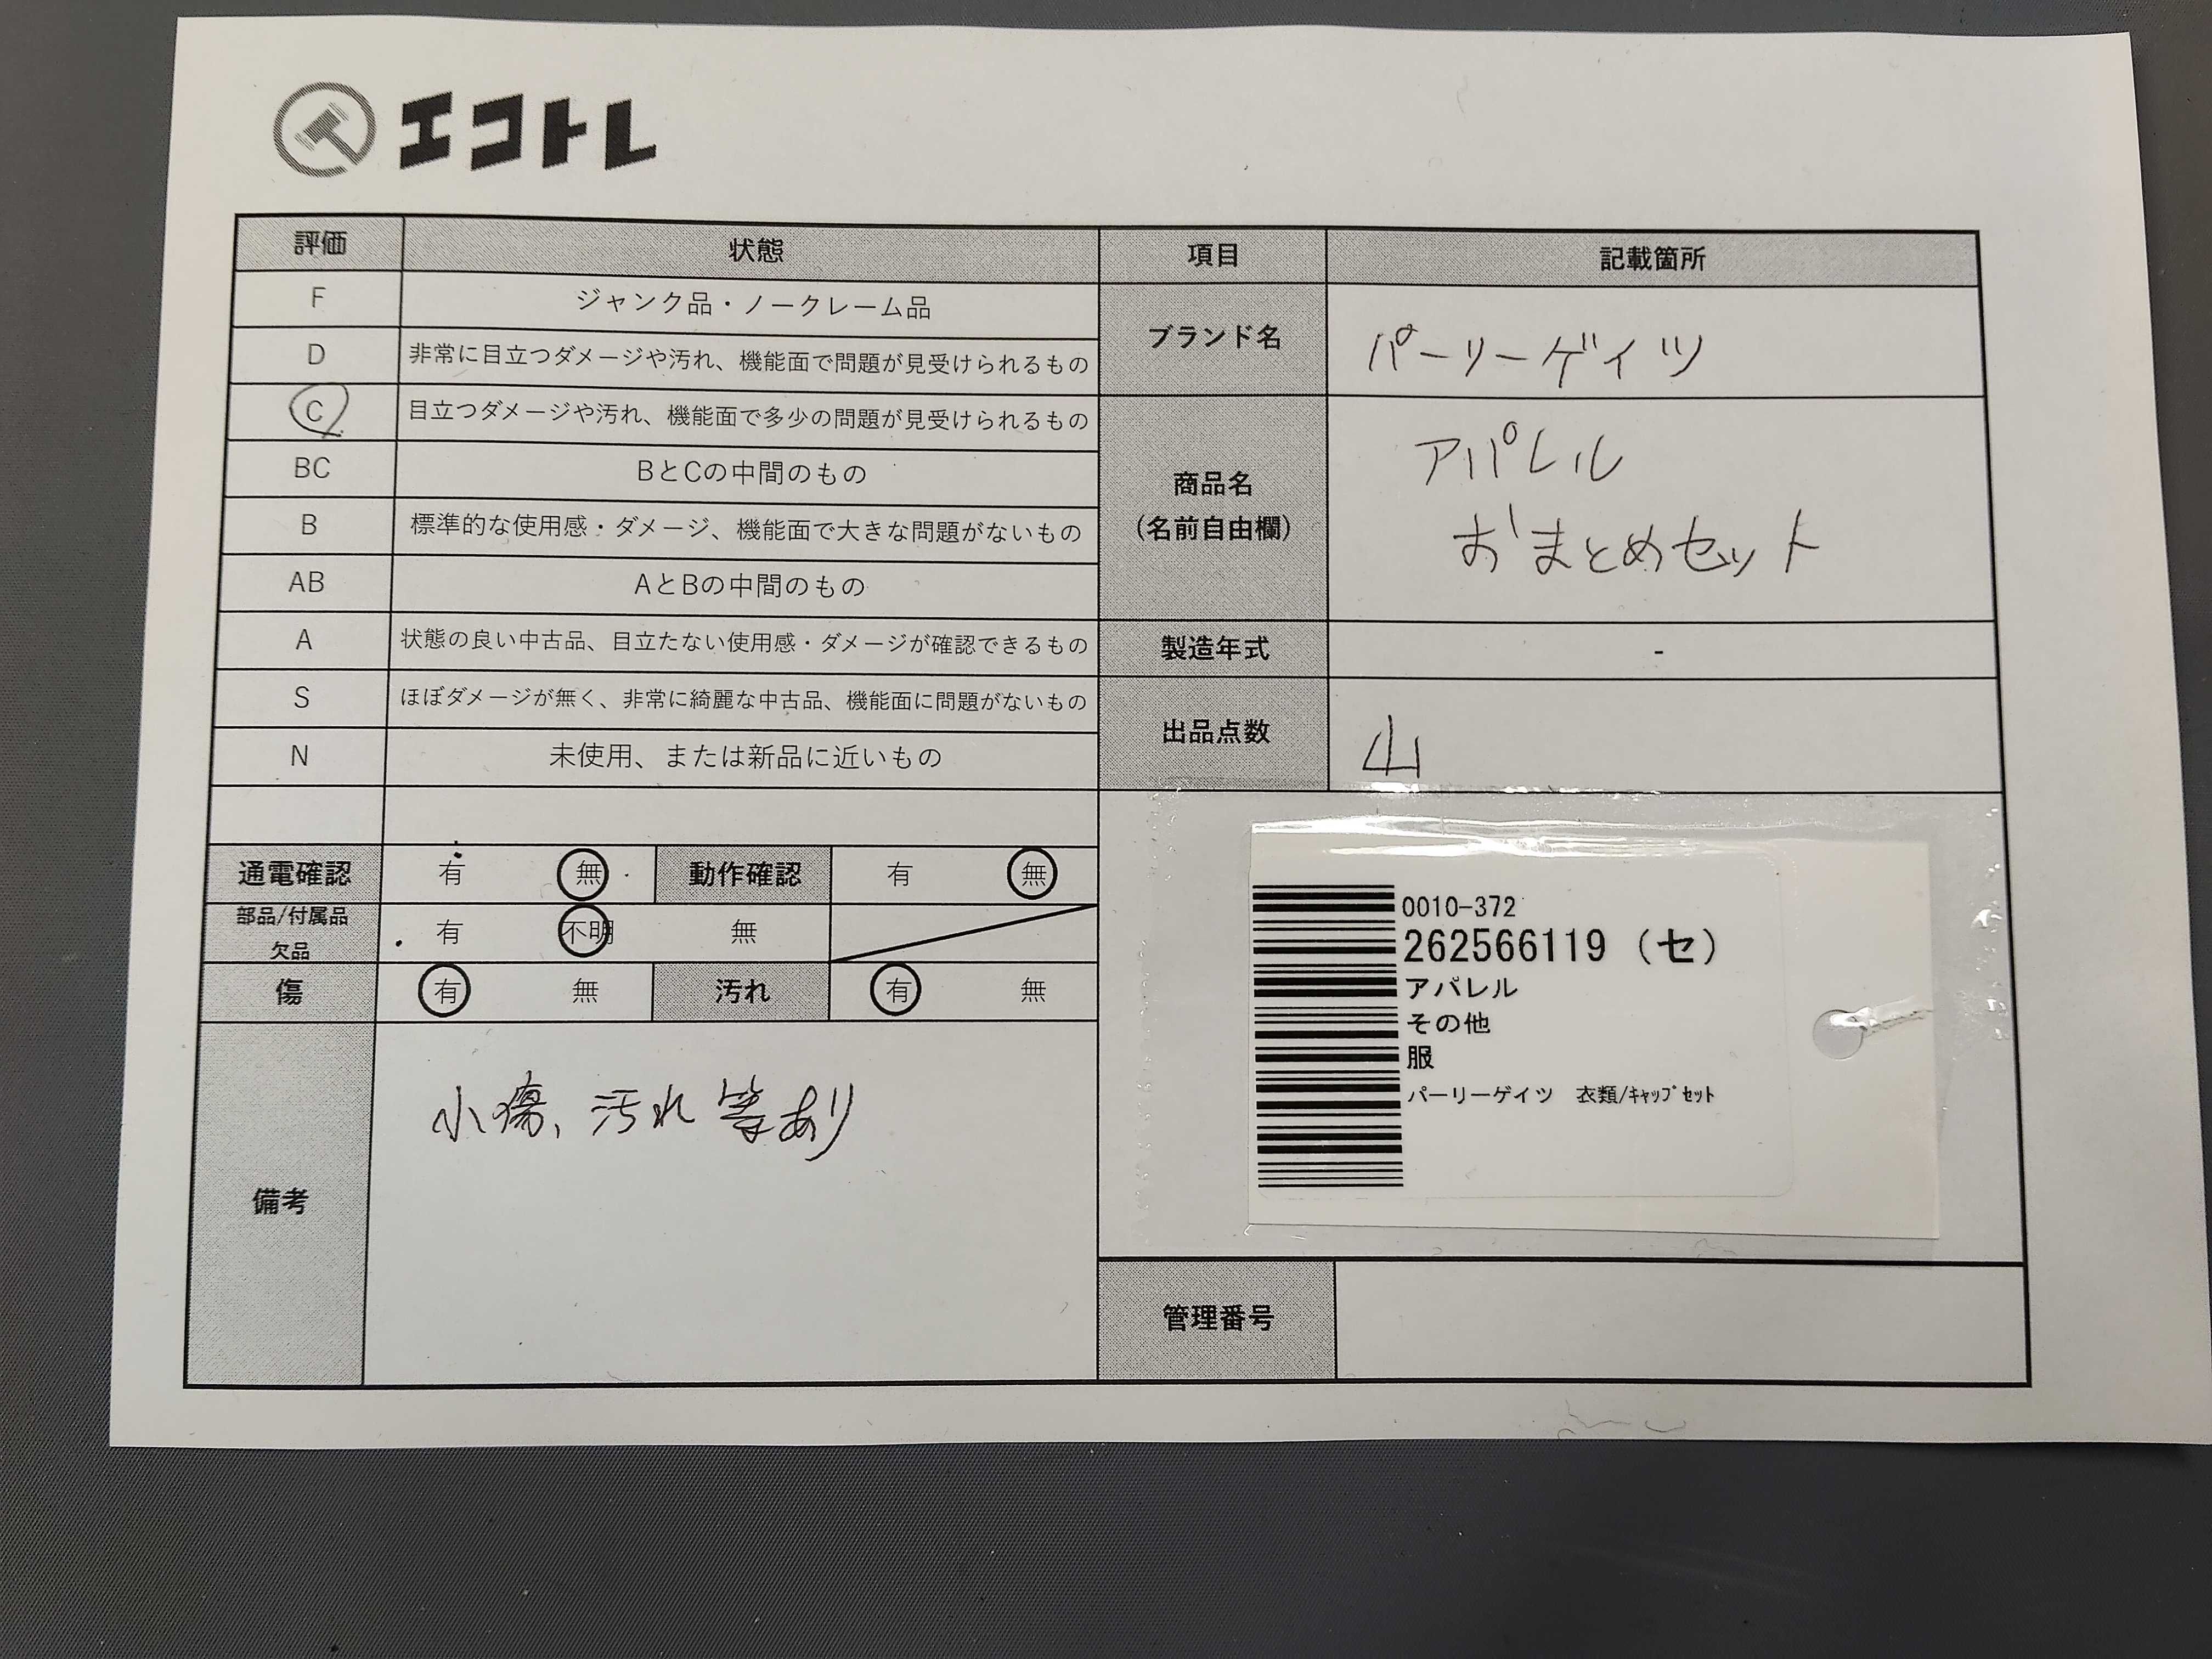 エコトレ
評価 状態 項目 記載箇所
F ジャンク品・ノークレーム品
D 非常に目立つダメージや汚れ、機能面で問題が見受けられるもの
C 目立つダメージや汚れ、機能面で多少の問題が見受けられるもの
BC BとCの中間のもの
B 標準的な使用感・ダメージ、機能面で大きな問題がないもの
AB AとBの中間のもの
A 状態の良い中古品、目立たない使用感・ダメージが確認できるもの
S ほぼダメージが無く、非常に綺麗な中古品、機能面に問題がないもの
N 未使用、または新品に近いもの
ブランド名 パーリーゲイツ
商品名
(名前自由欄)
アパレル
おまとめセット
製造年式 -
出品点数 山
通電確認 有 無 動作確認 有 無
部品/付属品
欠品
有 不明 無
傷 有 無 汚れ 有 無
備考
小傷、汚れ等あり
0010-372
262566119 (セ)
アパレル
その他
服
パーリーゲイツ 衣類/ｷｬｯﾌﾟｾｯﾄ
管理番号